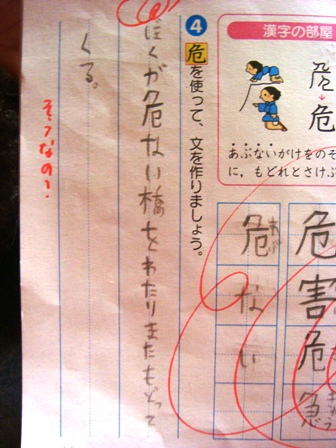 漢字の部屋
危
あぶないがけをのぞ
に，もどれとさけ
危害
危急
危ない
④危を使って、文を作りましょう。
ぼくが危ない橋をわたりまたもどって
くる。
そうなの！